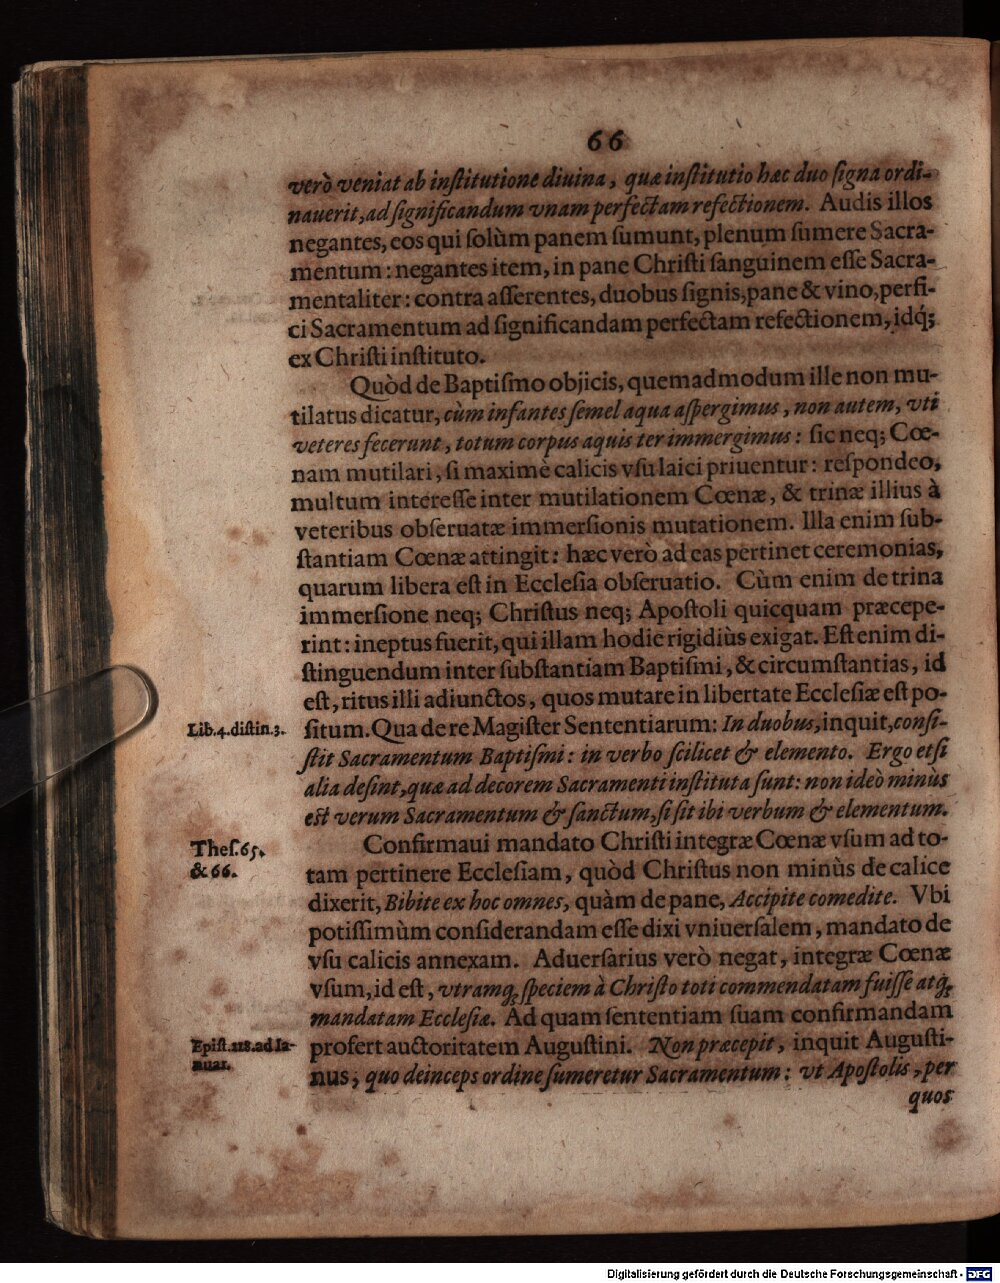 66
verò veniat ab inſtitutione diuina, quæ inſtitutio hæc duo ſigna ordi-
nauerit, ad ſignificandum vnam perfectam refectionem. Audis illos
negantes, eos qui ſolùm panem ſumunt, plenum ſumere Sacra-
mentum: negantes item, in pane Chriſti ſanguinem eſſe Sacra-
mentaliter: contra aſſerentes, duobus ſignis, pane & vino, perfi-
ci Sacramentum ad ſignificandam perfectam refectionem, idq́;
ex Chriſti inſtituto.
Quòd de Baptiſmo objicis, quemadmodum ille non mu-
tilatus dicatur, cùm infantes ſemel aqua aſpergimus, non autem, vti
veteres fecerunt, totum corpus aquis ter immergimus: ſic neq; Cœ-
nam mutilari, ſi maximè calicis vſu laici priuentur: reſpondeo,
multum intereſſe inter mutilationem Cœnæ, & trinæ illius à
veteribus obſeruatæ immerſionis mutationem. Illa enim ſub-
ſtantiam Cœnæ attingit: hæc verò ad eas pertinet ceremonias,
quarum libera eſt in Eccleſia obſeruatio. Cùm enim de trina
immerſione neq; Chriſtus neq; Apoſtoli quicquam præcepe-
rint: ineptus fuerit, qui illam hodie rigidiùs exigat. Eſt enim di-
ſtinguendum inter ſubſtantiam Baptiſmi, & circumſtantias, id
eſt, ritus illi adiunctos, quos mutare in libertate Eccleſiæ eſt po-
Lib. 4. diſtin. 3.
ſitum. Qua de re Magiſter Sententiarum: In duobus, inquit, conſi-
ſtit Sacramentum Baptiſmi: in verbo ſcilicet & elemento. Ergo etſi
alia deſint, quæ ad decorem Sacramenti inſtituta ſunt: non ideò minùs
eſt verum Sacramentum & ſanctum, ſi ſit ibi verbum & elementum.
Theſ. 65.
& 66.
Confirmaui mandato Chriſti integræ Cœnæ vſum ad to-
tam pertinere Eccleſiam, quòd Chriſtus non minùs de calice
dixerit, Bibite ex hoc omnes, quàm de pane, Accipite comedite. Vbi
potiſſimùm conſiderandam eſſe dixi vniuerſalem, mandato de
vſu calicis annexam. Aduerſarius verò negat, integræ Cœnæ
vſum, id eſt, vtramq; ſpeciem à Chriſto toti commendatam fuiſſe atq́;
mandatam Eccleſiæ. Ad quam ſententiam ſuam confirmandam
Epiſt. 118. ad Ia-
nuar.
profert auctoritatem Auguſtini. Non præcepit, inquit Auguſti-
nus, quo deinceps ordine ſumeretur Sacramentum: vt Apoſtolis, per
quos
Digitalisierung gefördert durch die Deutsche Forschungsgemeinschaft - DFG